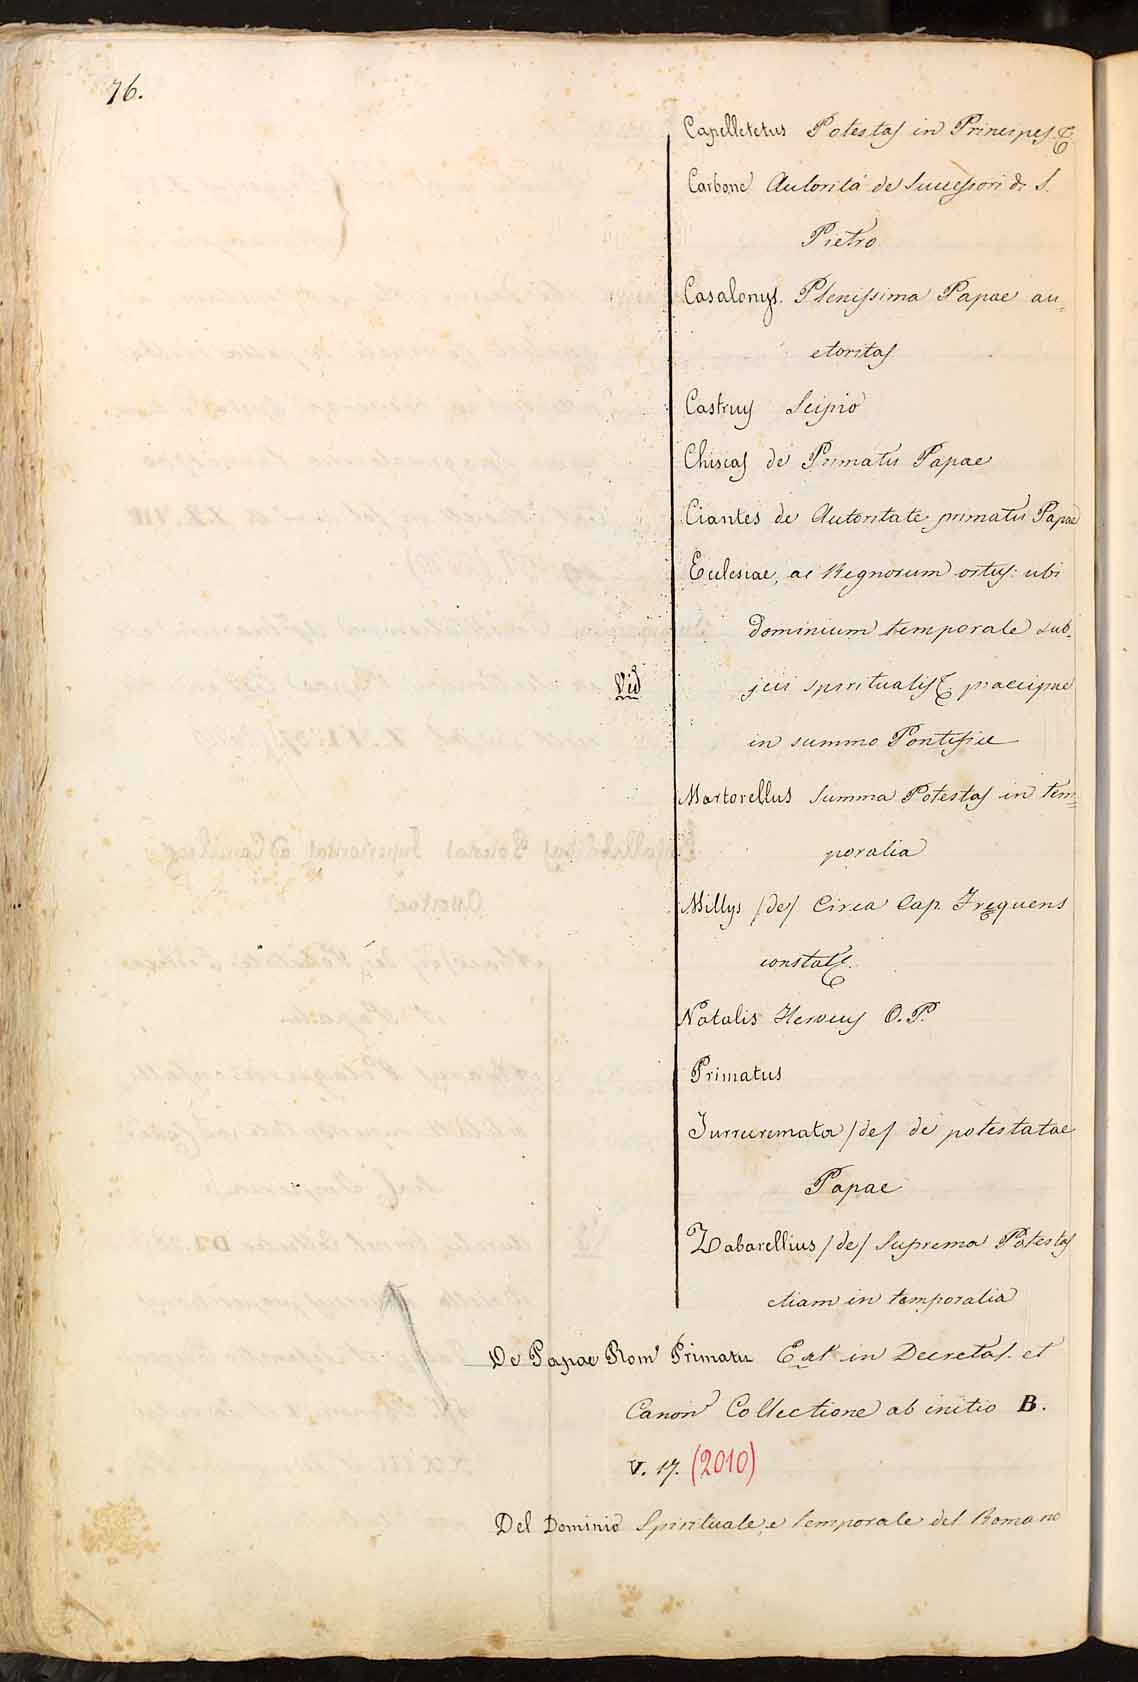 76.
Capelletetus Potestas in Principes &
Carbone Autorità de Successori di S.
Pietro
Casalonys. Plenissima Papae au=
ctoritas
Castruy Scipio
Chiscas de Primatu Papae
Ciantes de Autoritate primatu Papae
Eclesiae, ac Regnorum ortus: ubi
Dominium temporale sub=
Vid jici spiritualis & praecipue
in summo Pontifice
Martorellus Summa Potestas in tem=
poralia
Millys /de/ Circa Cap. Frequens
constat &.
Natalis Herveus O.P.
Primatus
Turrecremata /de/ de potestatae
Papae
Zabarellius /de/ Suprema Potestas
etiam in temporalia
De Papae Rom' Primatu Ext' in Decretal. et
Canon' Collectione ab initio B.
V. 17. (2010)
Del Dominio Spirituale, e temporale del Romano